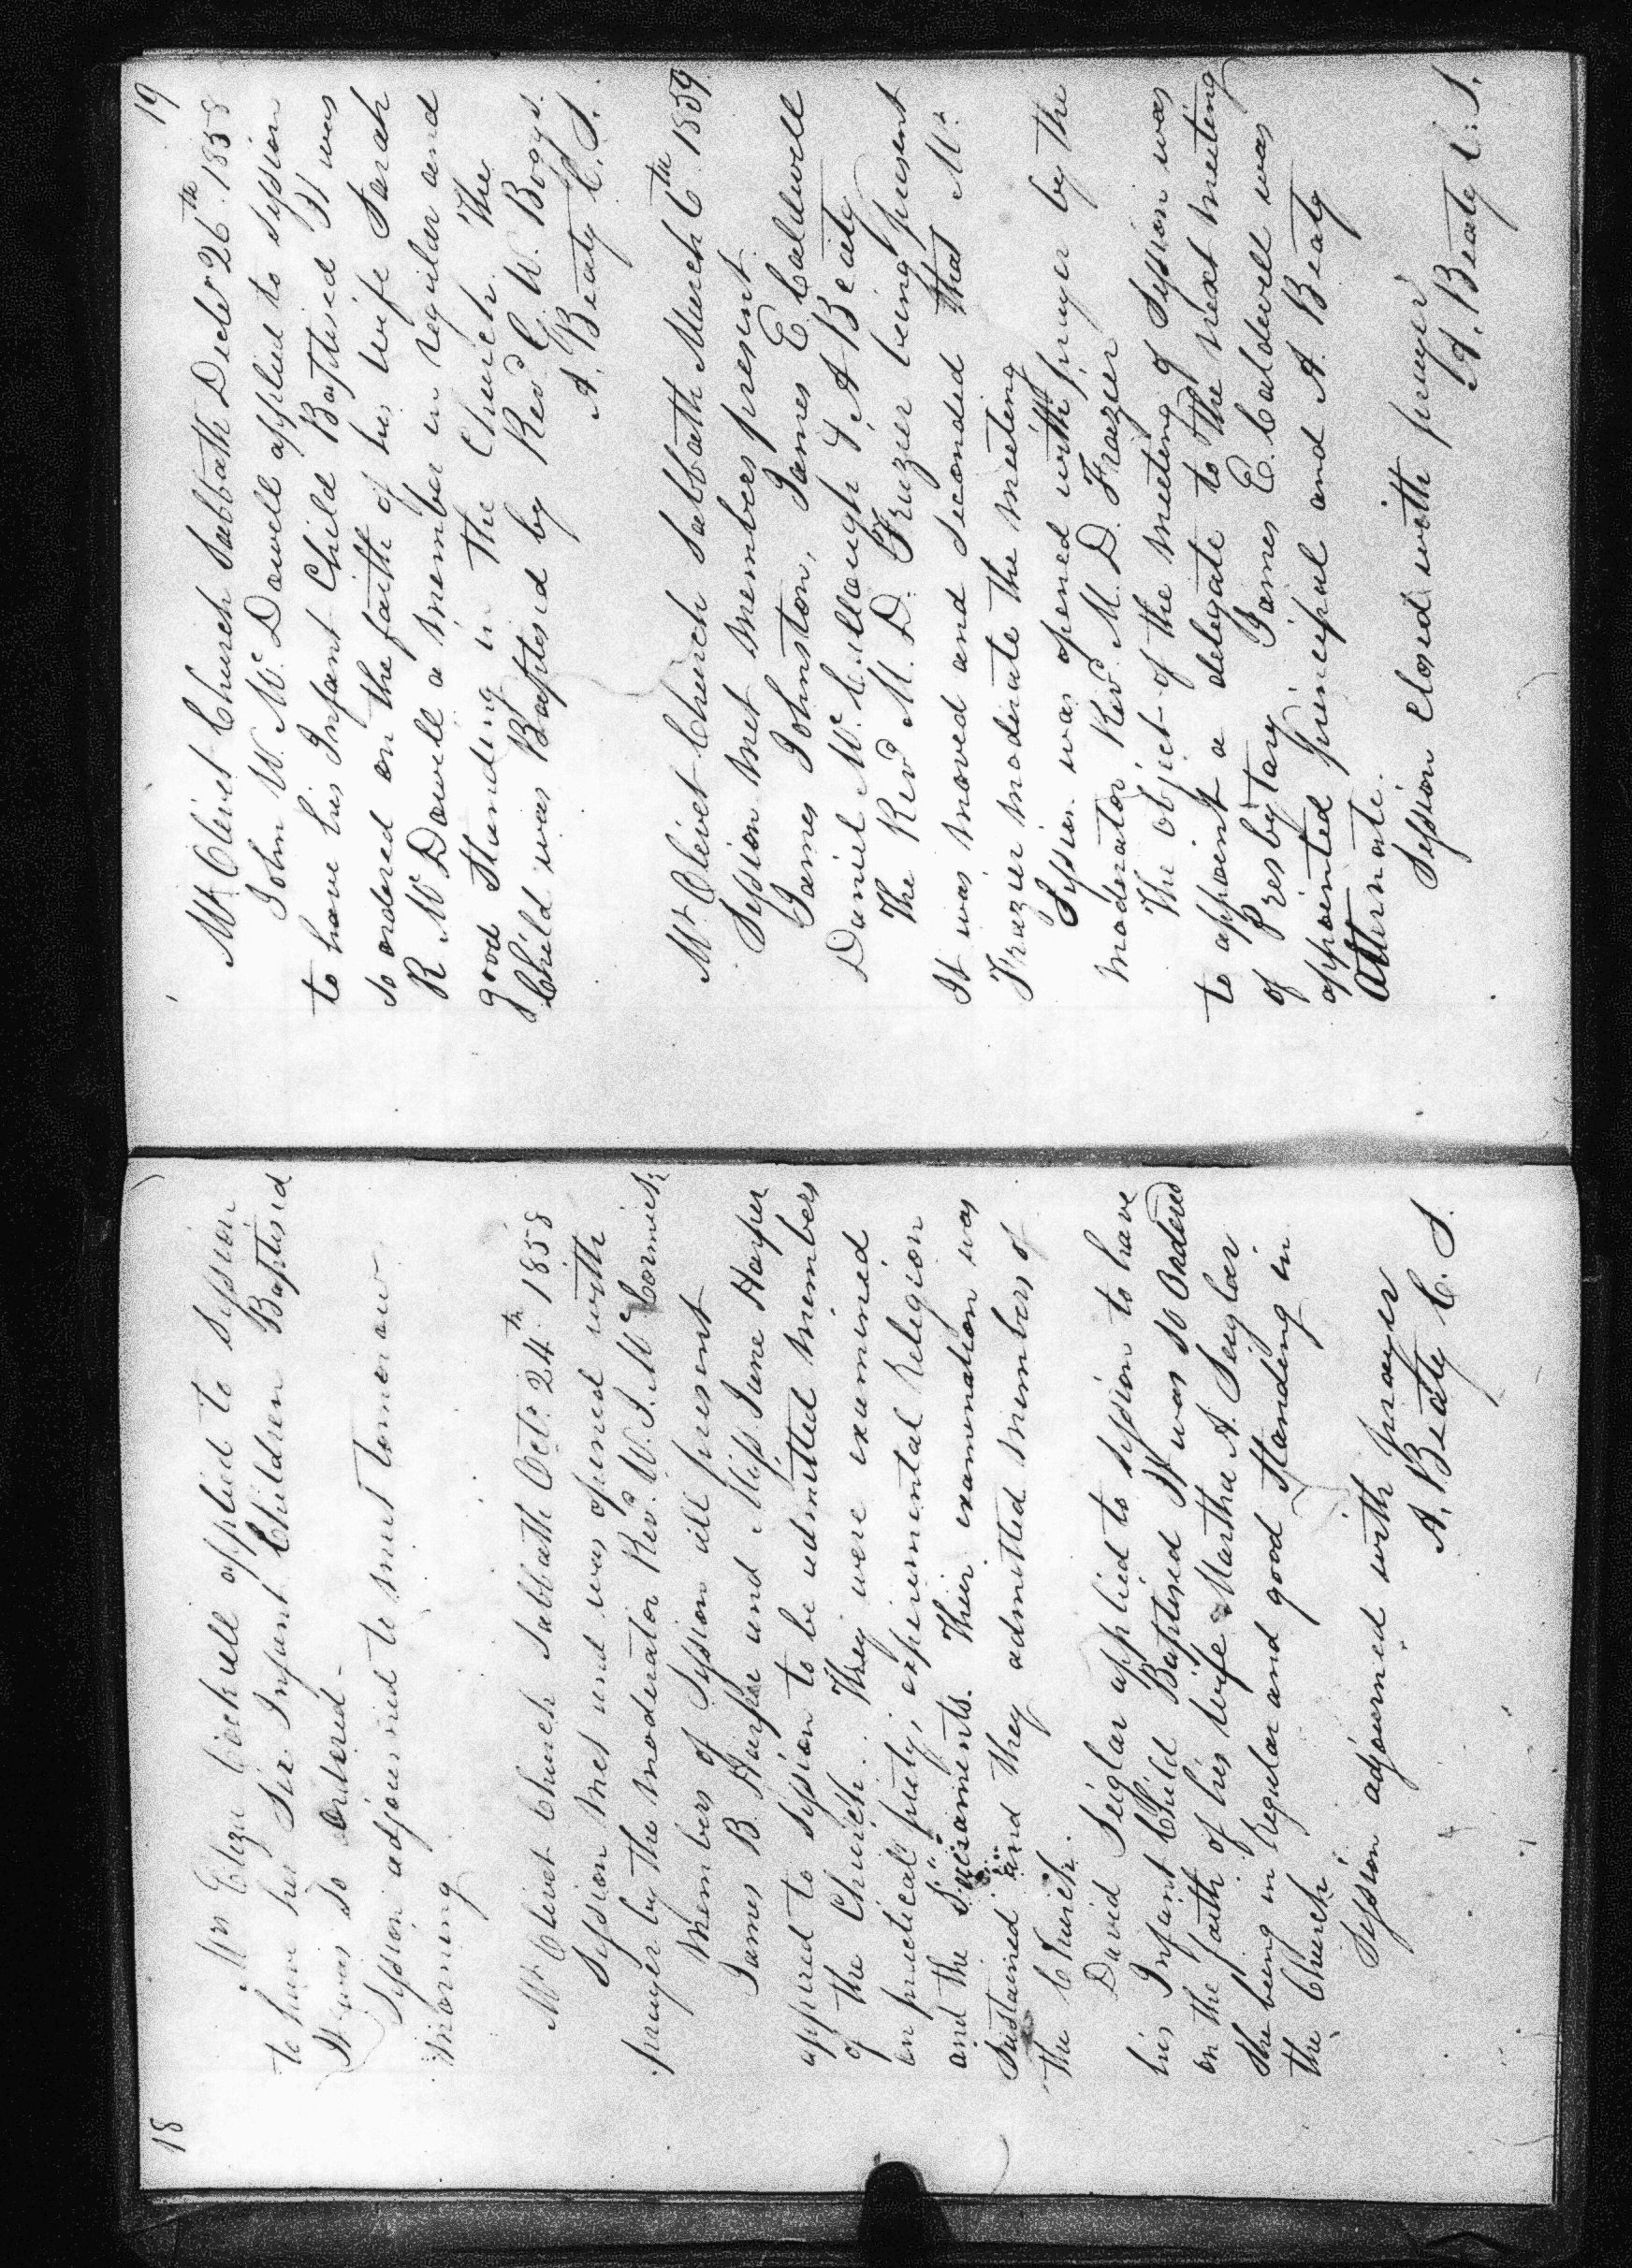 18
Mrs Eliza Cockrell applied to Session
to have her Six Infant Children Baptised
It was so ordered
Session adjourned to meet tomorrow
morning
Mt Olivet Church Sabbath Octr 24th 1858
Session met and was opened with
prayer by the moderator Revd W. J. McCormick
Members of Session all present
James B. Harper and Miss Jane Harper
appired to Session to be admitted members
of the Church. They were examined
on practical piety, experimental Religion
and the Sacraments. Their examination was
Sustained and they admitted members of
the Church.
David Seiglar applied to Session to have
his Infant Child Baptised It was so Ordered
on the faith of his wife Martha A. Seiglar
She being in Regular and good Standing in
the Church
Session adjourned with prayer
A. Beaty C. S.
19
Mt Olivet Church Sabbath Decbr 26th 1858
John W. McDowell applied to Session
to have his Infant Child Baptised It was
so ordered on the faith of his wife Sarah
R. McDowell a member in regular and
good Standing in the Church. The
Child was Baptised by Revd G. W. Boggs.
A. Beaty C. S.
Mt Olivet Church Sabbath March 6th 1859
Session met members present
James Johnston, James E Caldwell
Daniel McCullough & A Beaty
The Revd M. D. Frazier being present
It was moved and seconded that Mr.
Frazier moderate the meeting
Session was opened with prayer by the
moderator Revd M. D. Frazier
The object of the meeting of Session was
to appoint a delegate to the next meeting
of Presbytary James E. Caldwell was
appointed principal and A. Beaty
Alternate.
Session closed with prayer
A. Beaty C. S.